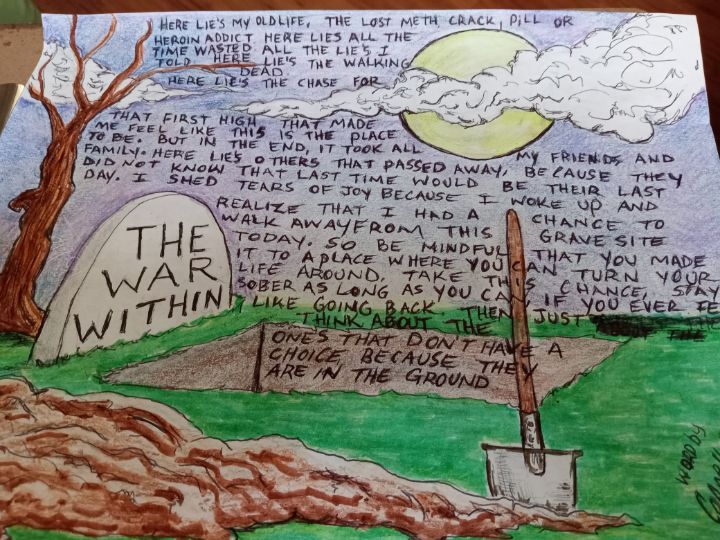 HERE LIE'S MY OLD LIFE, THE LOST METH CRACK, PILL OR
HEROIN ADDICT HERE LIES ALL THE
TIME WASTED ALL THE LIE'S I
TOLD HERE LIE'S THE WALKING
DEAD
HERE LIE'S THE CHASE FOR
THAT FIRST HIGH THAT MADE
ME FEEL LIKE THIS IS THE PLACE
TO BE. BUT IN THE END, IT TOOK ALL MY FRIENDS AND
FAMILY. HERE LIE'S OTHERS THAT PASSED AWAY, BECAUSE THEY
DID NOT KNOW THAT LAST TIME WOULD BE THEIR LAST
DAY. I SHED TEARS OF JOY BECAUSE I WOKE UP AND
REALIZE THAT I HAD A CHANCE TO
WALK AWAY FROM THIS GRAVE SITE
TODAY. SO BE MINDFUL THAT YOU MADE
IT TO A PLACE WHERE YOU CAN TURN YOUR
LIFE AROUND. TAKE THIS CHANCE, STAY
SOBER AS LONG AS YOU CAN, IF YOU EVER FE
LIKE GOING BACK. THEN JUST
THINK ABOUT THE
ONES THAT DON'T HAVE A
CHOICE BECAUSE THEY
ARE IN THE GROUND
THE
WAR
WITHIN
WORD BY